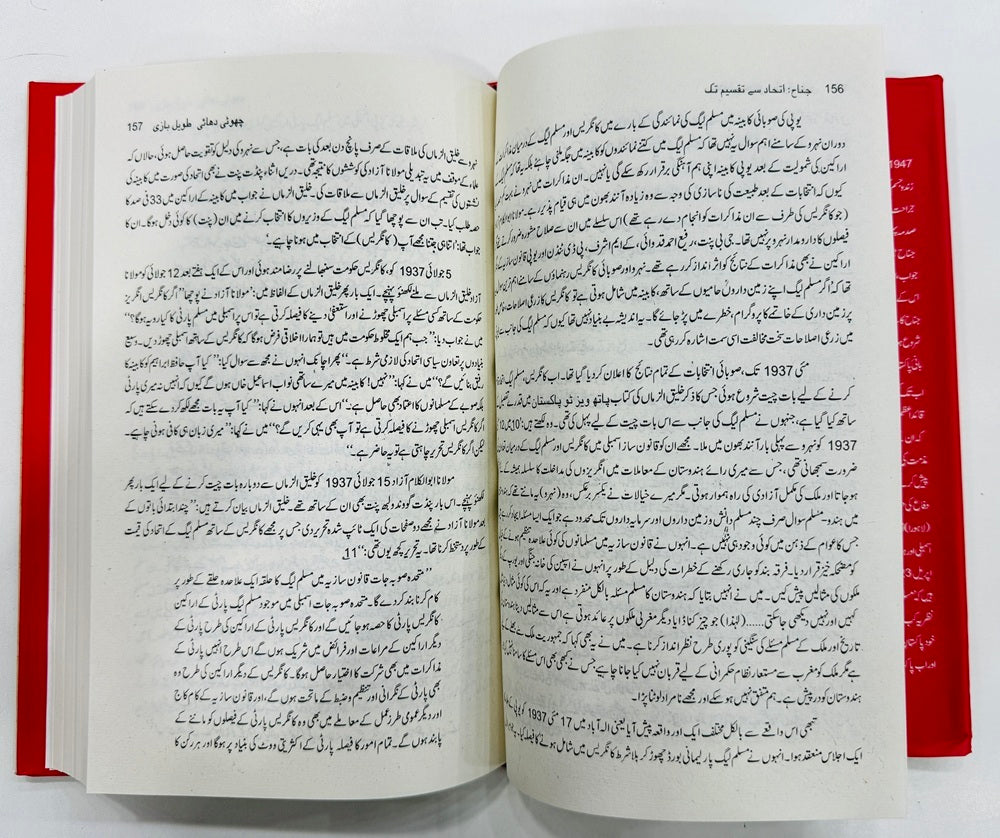 156 جناح: اتحاد سے تقسیم تک
یو پی کی صوبائی کابینہ میں مسلم لیگ کی نمائندگی کے بارے میں کانگریس اور مسلم لیگ کے درمیان
دوران نہرو کے سامنے اہم سوال یہ نہیں تھا کہ مسلم لیگ میں کتنے نمائندوں کو کابینہ میں جگہ ملنی چاہئے بلکہ یہ تھا کہ
اراکین کی شمولیت کے بعد یو پی کابینہ اپنی ہم آہنگی برقرار رکھ سکے گی یا نہیں۔ ان مذاکرات میں نہرو نے
کیوں کہ انتخابات کے بعد طبیعت کی ناسازی کی وجہ سے وہ زیادہ آنند بھون میں ہی قیام پذیر رہے۔
(جو کانگریس کی طرف سے ان مذاکرات کو انجام دے رہے تھے) اس سلسلے میں ان سے صلاح مشورہ ضرور کرتے
فیصلوں کا دارومدار نہرو پر نہیں تھا۔ جی بی پنت، رفیع احمد قدوائی، کے ایم اشرف، پی ڈی ٹنڈن اور یو پی قانون ساز
اراکین نے بھی مذاکرات کے نتائج کو اثر انداز کر رہے تھے۔ نہرو اور صوبائی کانگریس رہنماؤں کے سامنے اہم ترین سوال
تھا کہ اگر مسلم لیگ اپنے زمین داروں/حامیوں کے ساتھ، کابینہ میں شامل ہوتی ہے تو کانگریس کا زرعی اصلاحات
پر زمین داری کے خاتمے کا پروگرام، خطرے میں پڑ جائے گا۔ یہ اندیشہ بے بنیاد نہیں تھا کیوں کہ مسلم لیگ کی جانب سے
میں زرعی اصلاحات سخت مخالفت اسی سمت اشارہ کر رہی تھی۔
مئی 1937 تک، صوبائی انتخابات کے تمام نتائج کا اعلان کر دیا گیا تھا۔ اب کانگریس، مسلم لیگ
بات چیت شروع ہوئی جس کا ذکر خلیق الزماں کی کتاب پاتھ ویز ٹو پاکستان میں قدرے تفصیل
ساتھ کیا گیا ہے، جنہوں نے مسلم لیگ کی جانب سے اس بات چیت کے لیے پہل کی تھی۔ وہ لکھتے ہیں:
1937 کو نہرو سے پہلی بار آنند بھون میں ملا۔ مجھے ان کو قانون ساز اسمبلی میں کانگریس اور مسلم لیگ کے درمیان
ضرورت سمجھانی تھی، جس سے میری رائے ہندوستان کے معاملات میں انگریزوں کی مداخلت کا سلسلہ ہمیشہ کے
ہو جاتا اور ملک کی مکمل آزادی کی راہ ہموار ہوتی۔ مگر میرے خیالات نے یکسر برعکس، وہ (نہرو) یہ مانتے تھے کہ
میں ہندو-مسلم سوال صرف چند مسلم دانش وزمین داروں اور سرمایہ داروں تک محدود ہے جو ایک ایسا مسئلہ
جس کا عوام کے ذہن میں کوئی وجود ہی نہیں ہے۔ انہوں نے قانون سازیہ میں مسلمانوں کی کوئی علاحدہ تنظیم
کو مضحکہ خیز قرار دیا۔ فرقہ بند کو جاری رکھنے کے خطرات کی دلیل کے طور پر انہوں نے اسپین کی خانہ جنگی اور یورپ کے
ملکوں کی مثالیں پیش کیں۔ میں نے انہیں بتایا کہ ہندوستان کا مسلم مسئلہ بالکل منفرد ہے اور یہ کہ اس کی کوئی مثال
کہیں اور نہیں دیکھی جا سکتی......(لہٰذا) جو چیز کناڈا یا دیگر مغربی ملکوں پر عائد ہوتی ہے اس سے مثالیں
تاریخ اور ملک کے مسلم مسئلے کی سنگینی کو پوری طرح نظر انداز کرنا ہے۔ میں نے یہ بھی کہا کہ جمہوریت ملک سے
ہے مگر ملک کو مغرب سے مستعار نظام حکمرانی کے لیے قربان نہیں کیا جانا چاہیے جس نے کبھی بھی اس مسئلے کا سامنا
ہندوستان کو در پیش ہے۔ ہم متفق نہیں ہو سکے اور مجھے نامراد لوٹنا پڑا۔
تبھی اس واقعے سے بالکل مختلف ایک اور واقعہ پیش آیا یعنی الہ آباد میں 17 مئی 1937 کو یو پی کے
ایک اجلاس منعقد ہوا۔ انہوں نے مسلم لیگ پارلیمانی بورڈ چھوڑ کر بلا شرط کانگریس میں شامل ہونے کا فیصلہ کیا،
چھوٹی دھائی طویل بازی 157
نہرو سے خلیق الزماں کی ملاقات کے صرف پانچ دن بعد کی بات ہے، جس سے نہرو کی دلیل کو تقویت حاصل ہوئی، حالاں کہ
علماء کے موقف میں یہ تبدیلی مولانا آزاد کی کوششوں کا نتیجہ تھی۔ دریں اثناء پنڈت پنت نے بھی اتحاد کی صورت میں کابینہ کی
نشستوں کی تقسیم کے سوال پر خلیق الزماں سے ملاقات کی۔ خلیق الزماں نے جواب میں کابینہ کے اراکین میں 33 فی صد کا
حصہ طلب کیا۔ تب ان سے پوچھا گیا کہ مسلم لیگ کے وزیروں کا انتخاب کرنے میں ان (پنت) کا کوئی دخل ہوگا۔ ان کا
جواب تھا: 'اتنا ہی جتنا مجھے آپ (کانگریس) کے انتخاب میں ہونا چاہیے۔'
5 جولائی 1937 کو، کانگریس حکومت سنبھالنے پر رضامند ہوئی اور اس کے ایک ہفتے بعد 12 جولائی کو مولانا
آزاد خلیق الزماں سے ملنے لکھنؤ پہنچے۔ ایک بار پھر خلیق الزماں کے الفاظ میں: "مولانا آزاد نے پوچھا 'اگر کانگریس انگریز
حکومت کے ساتھ کسی مسئلے پر اسمبلی چھوڑنے اور استعفیٰ دینے کا فیصلہ کرتی ہے تو اس پر اسمبلی میں مسلم پارٹی کا کیا رویہ ہوگا؟'
میں نے جواب دیا: "جب ہم ایک مخلوط حکومت میں ہیں تو ہمارا اخلاقی فرض ہوگا کہ کانگریس کے ساتھ اسمبلی چھوڑ دیں۔ وسیع
بنیادوں پر تعاون سیاسی اتحاد کی لازمی شرط ہے۔" پھر اچانک انہوں نے مجھ سے سوال کیا: "کیا آپ حافظ ابراہیم کو کابینہ کا
رفیق بنائیں گے؟" میں نے کہا: "نہیں! کابینہ میں میرے ساتھی نواب اسماعیل خاں ہوں گے کیوں کہ انہیں نہ میری پارٹی
بلکہ صوبے کے مسلمانوں کا اعتماد بھی حاصل ہے۔" اس کے بعد انہوں نے کہا: "کیا آپ یہ بات مجھے لکھ کر دے سکتے ہیں کہ
اگر کانگریس اسمبلی چھوڑنے کا فیصلہ کرتی ہے تو آپ بھی یہی کریں گے؟" میں نے کہا: "میری زبان ہی کافی ہونی چاہیے۔
لیکن اگر کانگریس تحریر چاہتی ہے تو یہ حاضر ہے۔"
مولانا ابوالکلام آزاد 15 جولائی 1937 کو خلیق الزماں سے دوبارہ بات چیت کرنے کے لیے ایک بار پھر
لکھنؤ پہنچے۔ اس بار پنڈت گووند ولبھ پنت بھی ان کے ساتھ تھے۔ خلیق الزماں بیان کرتے ہیں: "چند ابتدائی باتوں کے
بعد مولانا آزاد نے مجھے دو صفحات کی ایک ٹائپ شدہ تحریر دی، جس پر مجھے کانگریس کے ساتھ مسلم لیگ کے اتحاد کی قیمت
کے طور پر دستخط کرنا تھا۔ یہ تحریر کچھ یوں تھی: "11
"متحدہ صوبہ جات قانون سازیہ میں مسلم لیگ کا حلقہ ایک علاحدہ حلقے کے طور پر
کام کرنا بند کر دے گا۔ متحدہ صوبہ جات اسمبلی میں موجود مسلم لیگ پارٹی کے اراکین
کانگریس پارٹی کا حصہ ہو جائیں گے اور کانگریس پارٹی کے اراکین کی طرح پارٹی کے
دیگر اراکین کے مراعات اور فرائض میں شریک ہوں گے اس طرح انہیں پارٹی کے
مذاکرات میں بھی شرکت کا اختیار حاصل ہوگا۔ کانگریس پارٹی کے دیگر اراکین کی طرح وہ
بھی پارٹی کے نگرانی اور تنظیم و ضبط کے ماتحت ہوں گے، اور قانون سازیہ کے کام کاج
اور دیگر عمومی طرز عمل کے معاملے میں بھی وہ کانگریس پارٹی کے فیصلوں کو ماننے کے
پابند ہوں گے۔ تمام امور کا فیصلہ پارٹی کے اکثریتی ووٹ کی بنیاد پر ہوگا اور ہر رکن کا
1947